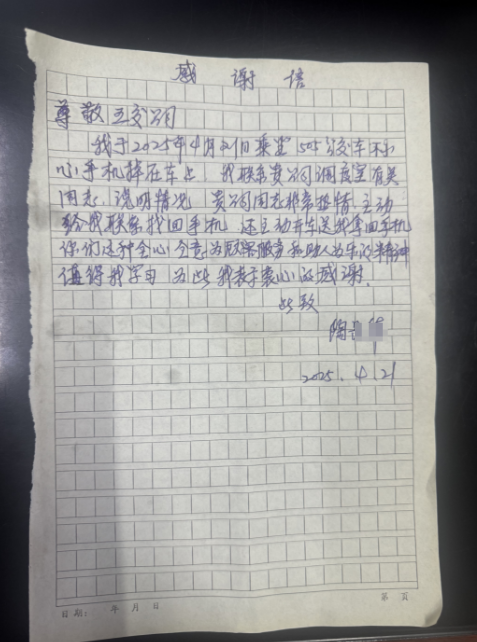 感谢信
尊敬公交公司
我于2025年4月21日乘坐505公交车不小
心手机掉在车上 我联系贵公司调度室有关
同志,说明情况 贵公司同志非常热情 主动
给我联系找回手机 还主动开车送我拿回手机
你们这种全心全意为顾客服务和助人为乐的精神
值得我学习 为此我表示衷心的感谢!
此致
陶
2025.4.21
日期: 年 月 日 第 页